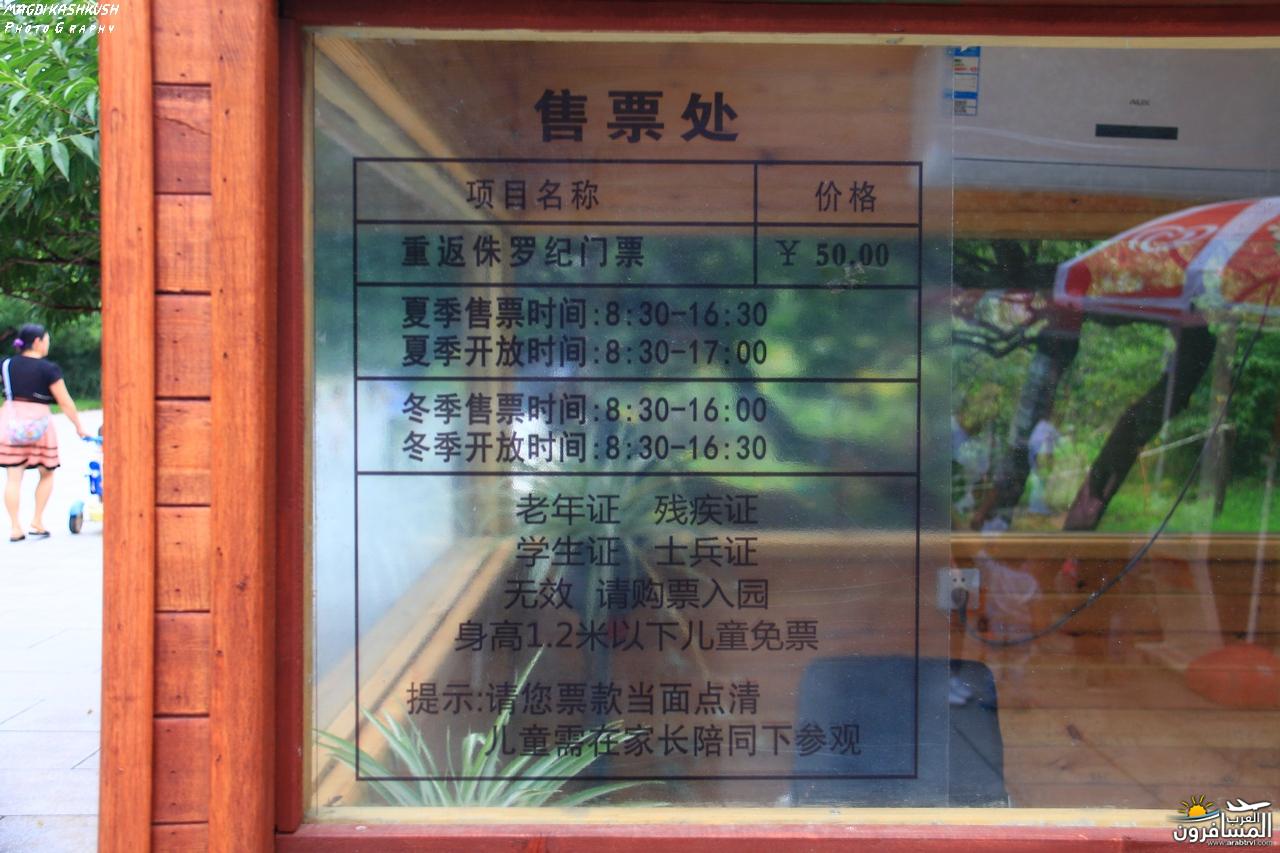 MAGDI KASHKUSH
PHOTOGRAPHY
售票处
项目名称 价格
重返侏罗纪门票 ¥ 50.00
夏季售票时间:8:30-16:30
夏季开放时间:8:30-17:00
冬季售票时间:8:30-16:00
冬季开放时间:8:30-16:30
老年证 残疾证
学生证 士兵证
无效 请购票入园
身高1.2米以下儿童免票
提示:请您票款当面点清
儿童需在家长陪同下参观
AUX
العرب
المسافرون
www.arabtrvl.com